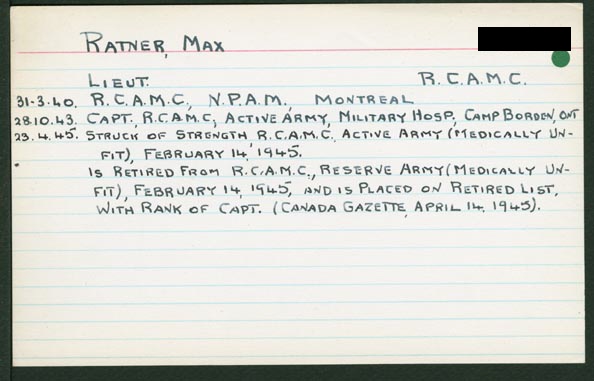 RATNER, MAX
LIEUT. R.C.A.M.C.
31-3-40. R.C.A.M.C., N.P.A.M., MONTREAL
28.10.43. CAPT., R.C.A.M.C., ACTIVE ARMY, MILITARY HOSP., CAMP BORDEN, ONT
23.4.45. STRUCK OF STRENGTH R.C.A.M.C., ACTIVE ARMY (MEDICALLY UN-
FIT), FEBRUARY 14, 1945.
IS RETIRED FROM R.C.A.M.C., RESERVE ARMY (MEDICALLY UN-
FIT), FEBRUARY 14, 1945, AND IS PLACED ON RETIRED LIST,
WITH RANK OF CAPT. (CANADA GAZETTE, APRIL 14, 1945).